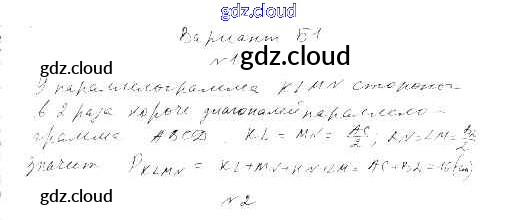 gdz.cloud
Вариант Б1
№1
gdz.cloud gdz.cloud
У параллелограмма KLMN стороны
в 2 раза короче диагоналей параллело-
gdz.cloud gdz.cloud
грамма ABCD. KL = MN = AC/2; KN = LM = BD/2
значит P KLMN = KL + MN + KN + LM = AC + BD =
gdz.cloud gdz.cloud
№2